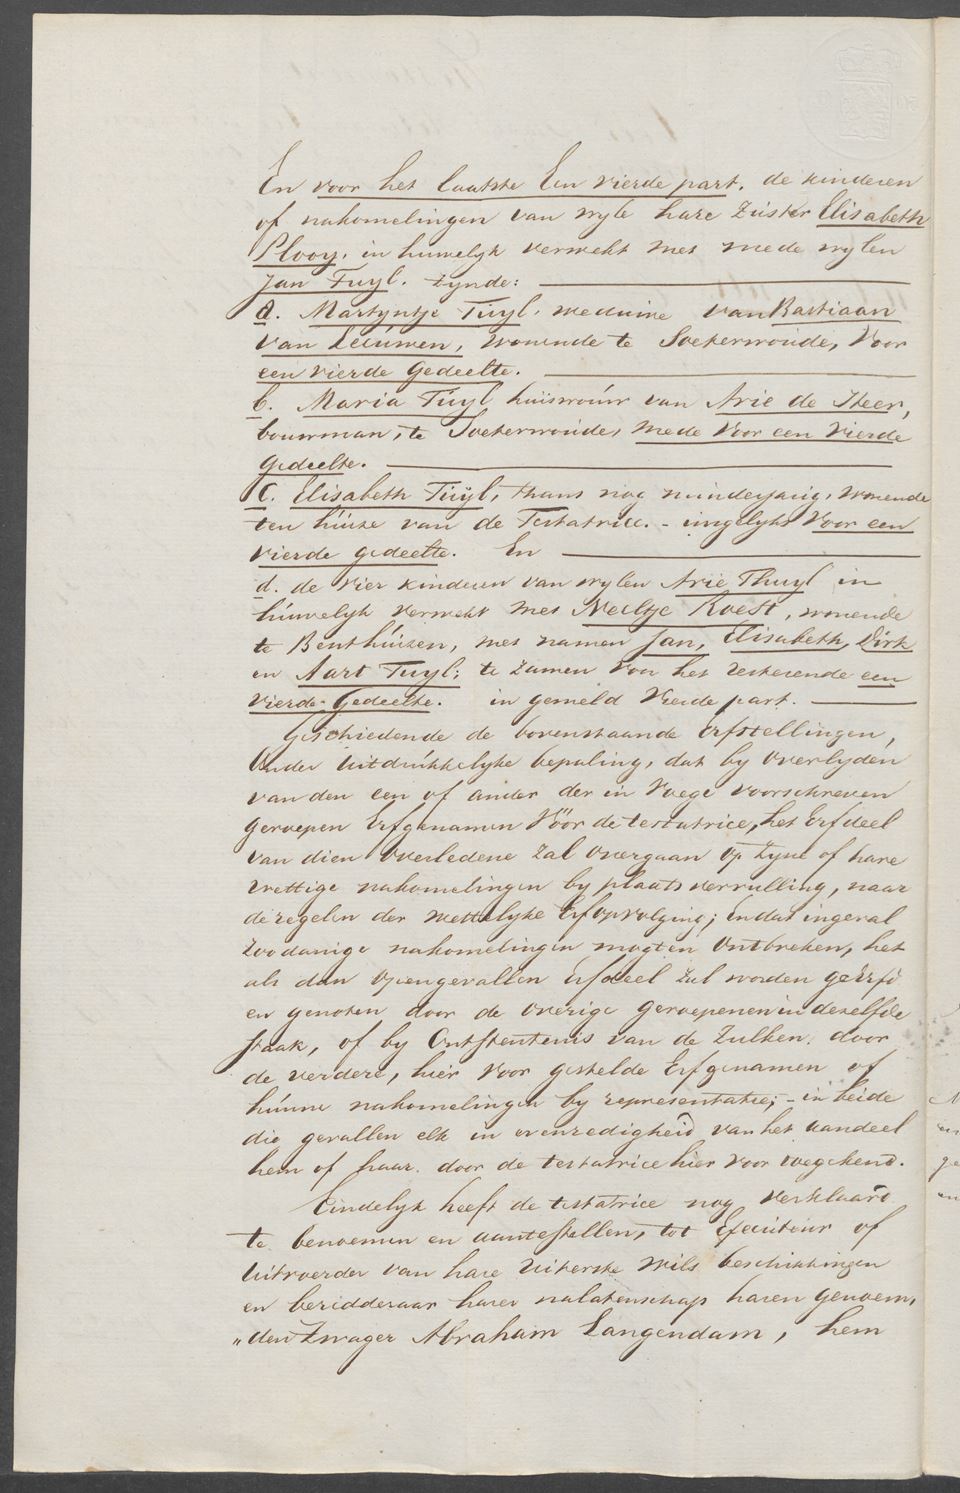 En voor het laatste Een vierde part, de kinderen
of nakomelingen van wyle hare zuster Elisabeth
Plooy, in huwelyk verwekt met mede wylen
Jan Tuyl. zynde:
a. Martyntje Tuyl, weduwe van Bastiaan
van Leeuwen, wonende te Soeterwoude, Voor
een vierde Gedeelte.
b. Maria Tuyl huisvrouw van Arie de Heer,
bouwman, te Soeterwoude, mede voor een Vierde
gedeelte.
C. Elisabeth Tuyl, thans nog minderjarig, wonende
ten huize van de Testatrice. - insgelyks Voor een
vierde gedeelte. En
d. de Vier kinderen van wylen Arie Thuyl in
huwelyk verwekt met Neeltje Roest, wonende
te Benthuizen, met namen Jan, Elisabeth, Dirk
en Aart Tuyl; te zamen voor het resterende een
Vierde-Gedeelte. in gemeld Vierde part.
Geschiedende de bovenstaande Erfstellingen,
Onder Uitdrukkelyke bepaling, dat by Overlyden
van den een of ander der in Voege voorschreven
geroepen Erfgenamen Vóór de testatrice, het Erfdeel
van dien Overledene zal overgaan op zyne of hare
wettige nakomelingen by plaatsvervulling, naar
de regelen der wettelyke Erfopvolging; Endat ingeval
zoodanige nakomelingen mogten Ontbreken, het
als dan Opengevallen Erfdeel zal worden geërfd
en genoten door de overige geroepenen in dezelfde
staak, of by Ontstentenis van de Zulken, door
de verdere, hier Voor gestelde Erfgenamen of
hunne nakomelingen by representatie; - in beide
die gevallen elk in evenredigheid van het aandeel
hem of haar, door de testatrice hier voor toegekend.
Eindelyk heeft de testatrice nog verklaard
te benoemen en aantestellen, tot Executeur of
Uitvoerder van hare Uiterste wils beschikkingen
en beridderaar harer nalatenschap haren genoem,
„den Zwager Abraham Langendam, hem